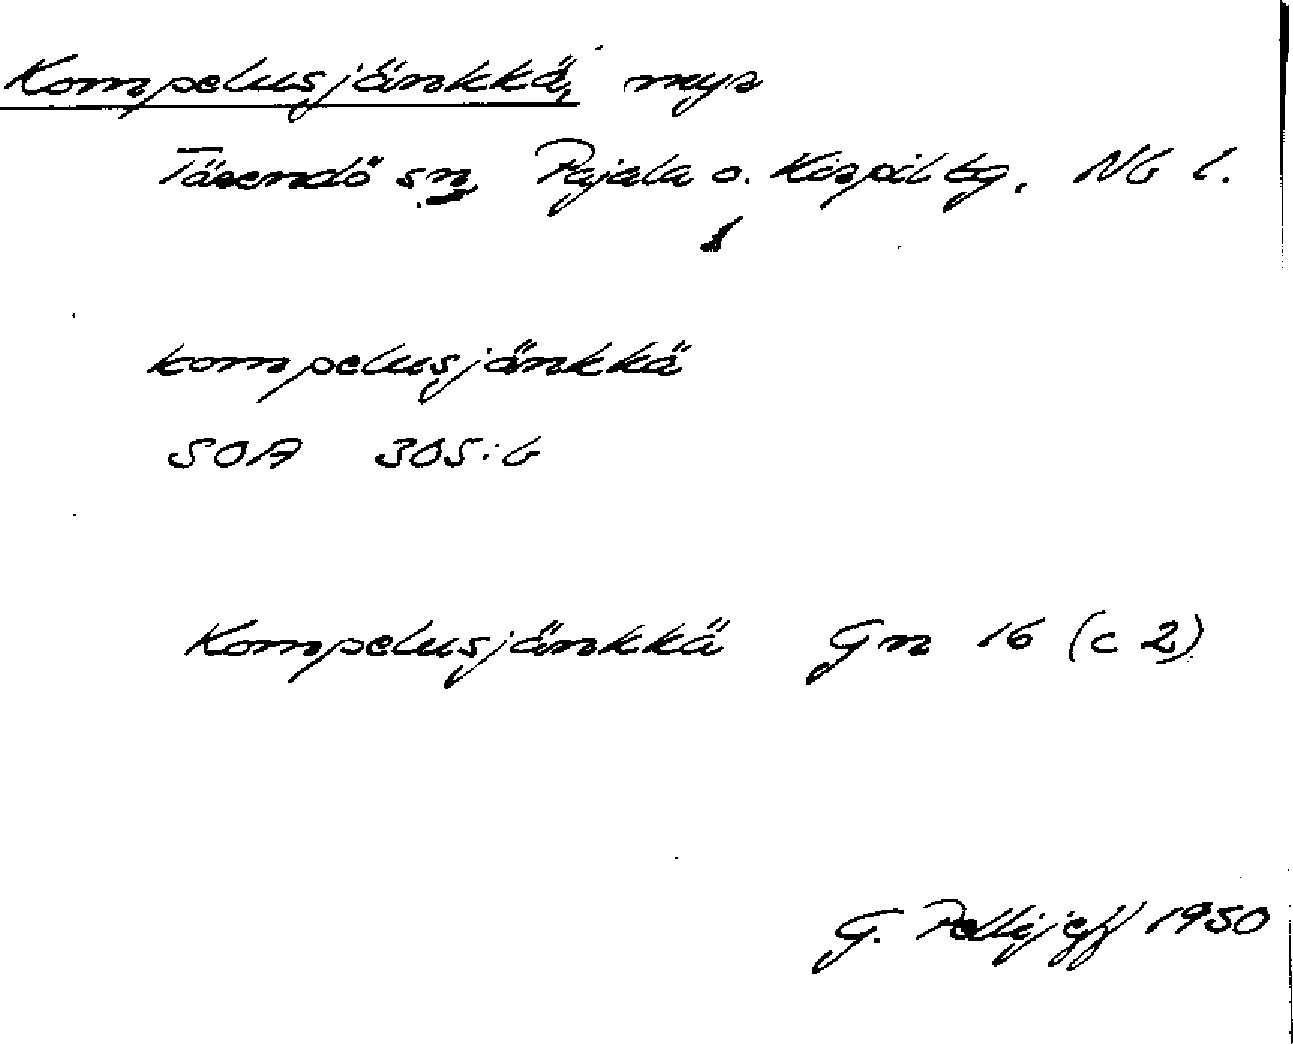 Kompelusjänkkä, myr
Tärendö sn, Pajala o. Korpil tg, Nb l.
kompelusjänkkä
SOA 305:6
Kompelusjänkkä Gn 16 (c 2)
G. Pellijeff 1950